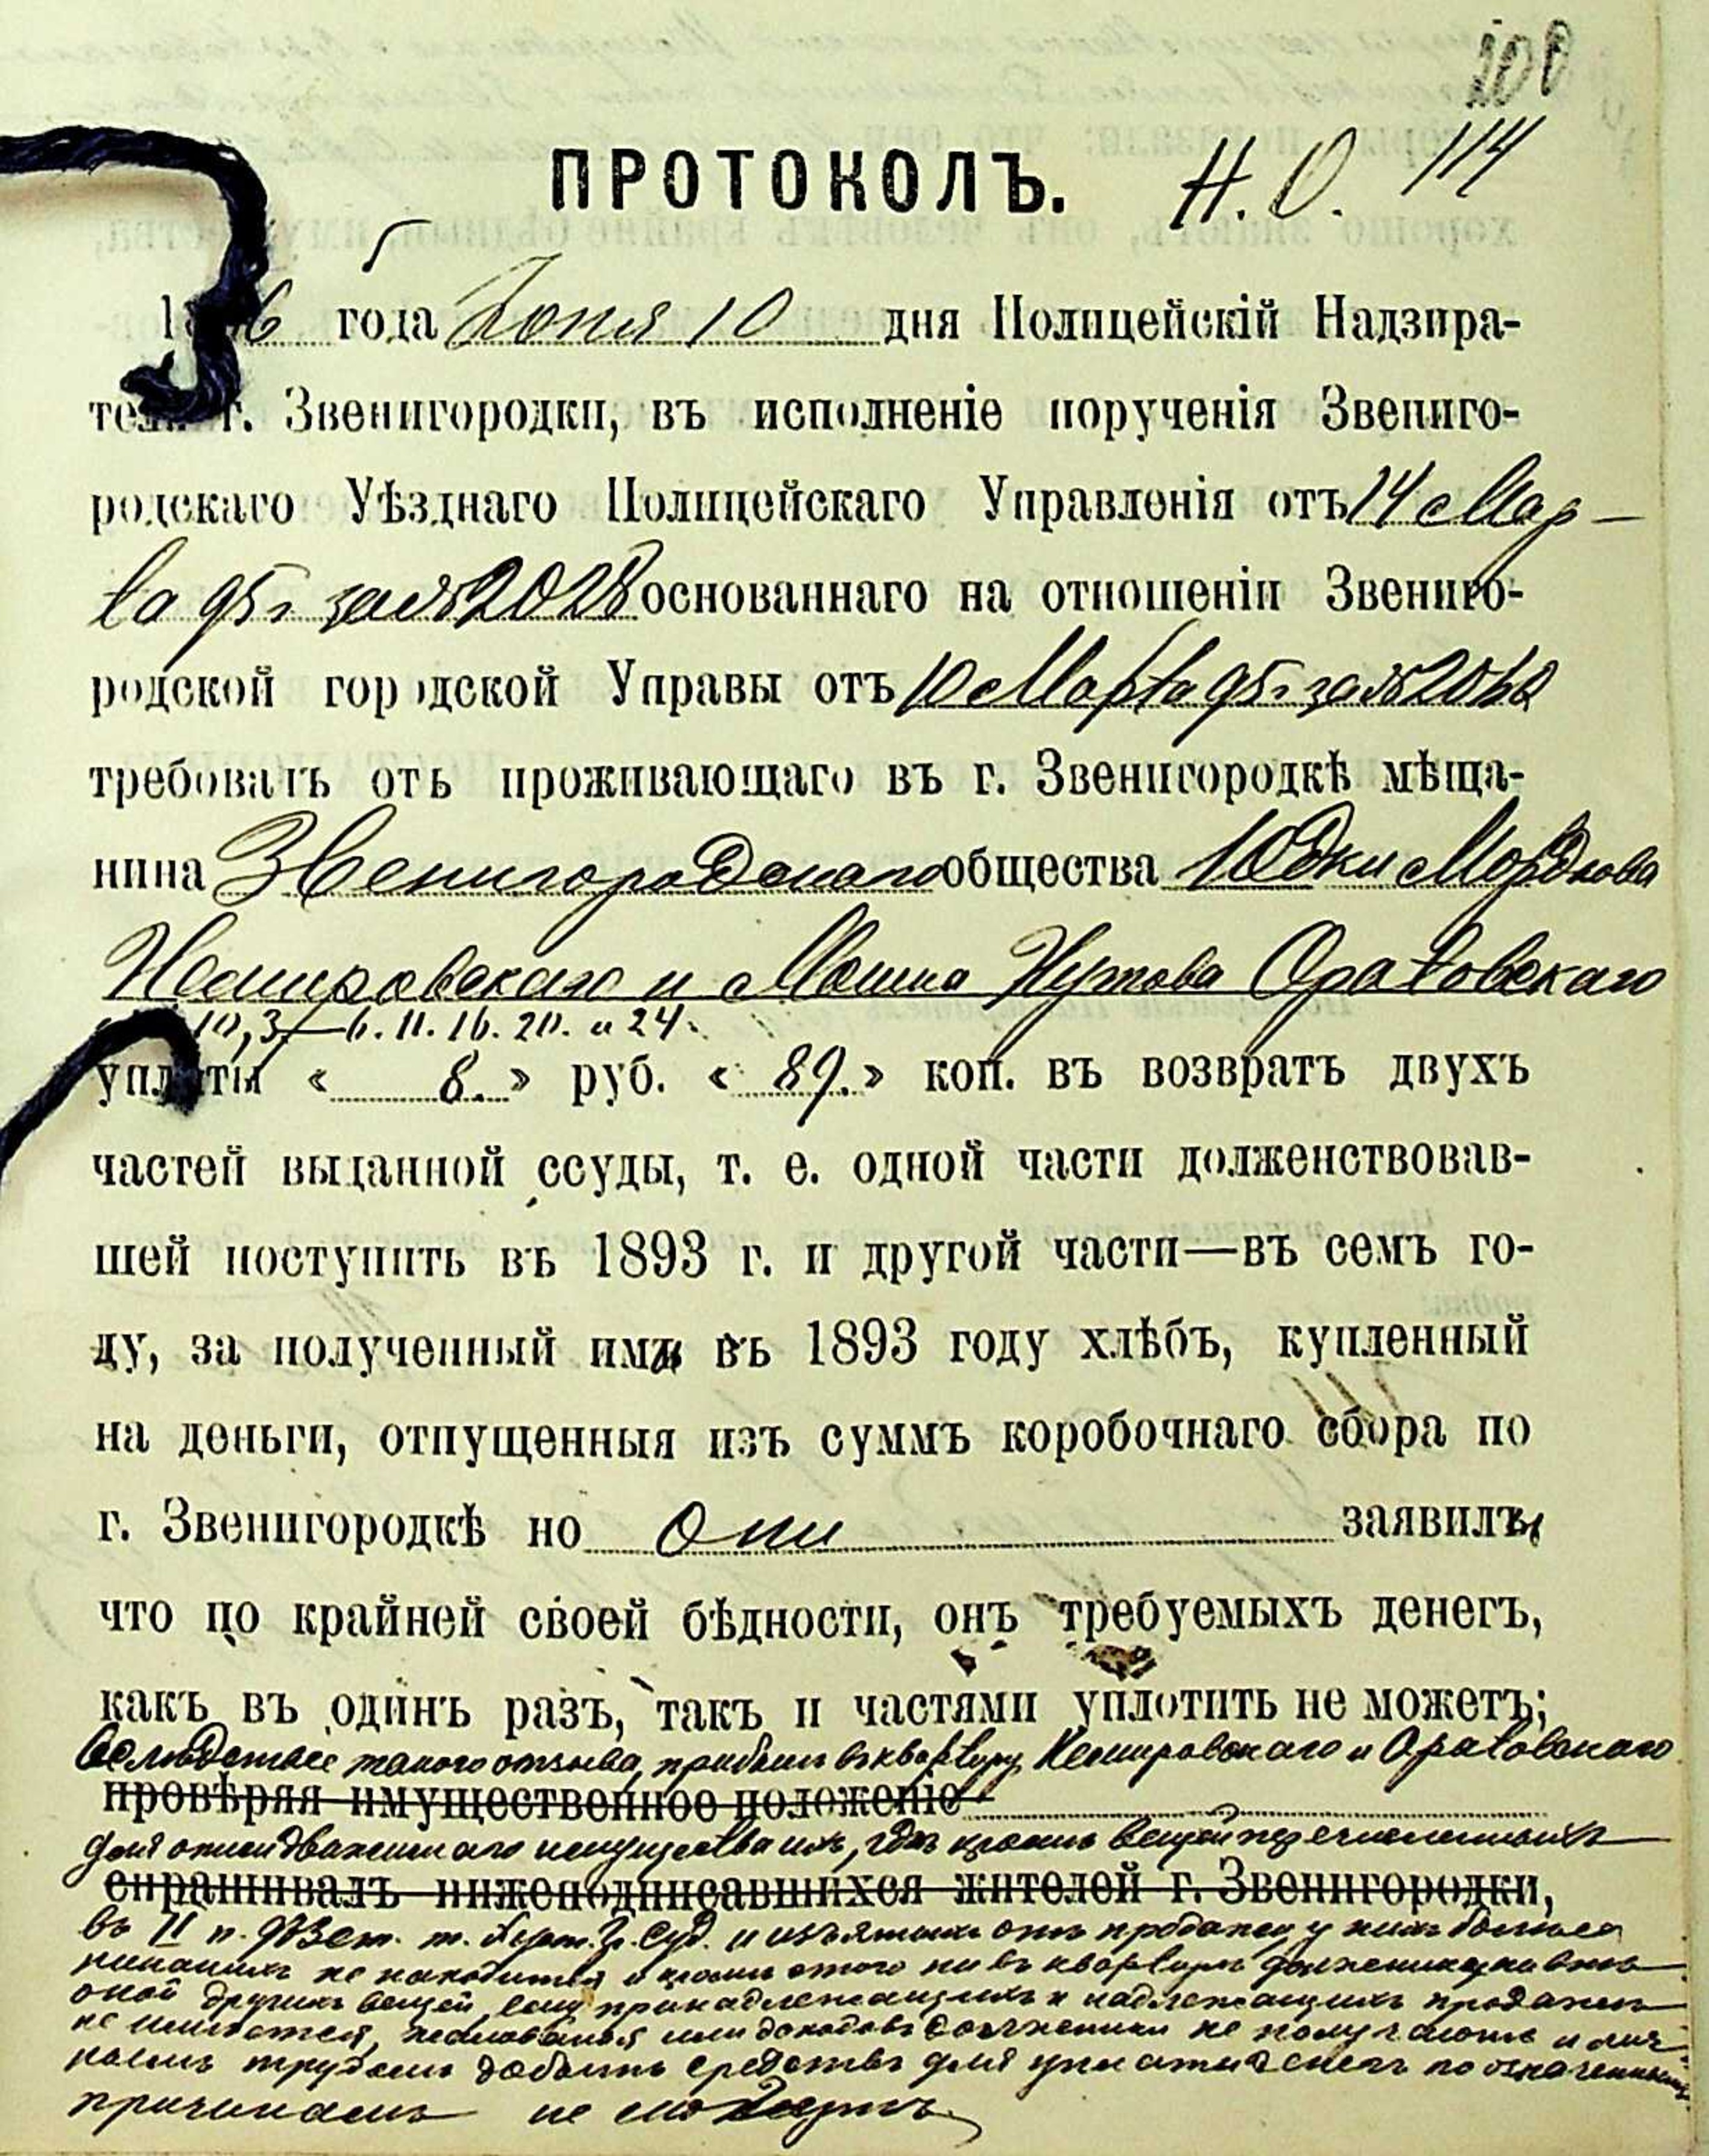 200
ПРОТОКОЛЪ. Н. О. 114
6 года Іюня 10 дня Полицейскій Надзира-
г. Звенигородки, въ исполненіе порученія Звениго-
родскаго Уѣзднаго Полицейскаго Управленія отъ 14 Мар-
та 95 г за № 2028 основаннаго на отношеніи Звениго-
родской городской Управы отъ 10 Марта 95 г за №
требовать отъ проживающаго въ г. Звенигородкѣ мѣща-
нина Звенигородскаго общества Юдки Мордкова
Немировскаго и Мошка Нутова Оратовскаго
10,3/ — 6. 11. 16. 20. и 24.
уплаты « 8. » руб. « 89. » коп. въ возвратъ двухъ
частей выданной ссуды, т. е. одной части долженствовав-
шей поступить въ 1893 г. и другой части—въ семъ го-
ду, за полученный ими въ 1893 году хлѣбъ, купленный
на деньги, отпущенныя изъ суммъ коробочнаго сбора по
г. Звенигородкѣ но они заявили
что по крайней своей бѣдности, онъ требуемыхъ денегъ,
какъ въ одинъ разъ, такъ и частями уплотить не можетъ;
Вслѣдствіе такого отзыва, прибывъ въ квартиру Немировскаго и Оратовскаго
провѣряя имущественное положеніе
для описи движимаго имущества ихъ, гдѣ кромѣ вещей перечисленныхъ
спрашивалъ нижеподписавшихся жителей г. Звенигородки,
въ II п. 973 ст. т. Суд. и изъятыхъ отъ продажи у нихъ больше
никакихъ не находится и кромѣ этого ни въ квартирѣ должника ни внѣ
оной другихъ вещей, ему принадлежащихъ и надлежащихъ продажѣ
не имѣется, жалованья или доходовъ должники не получаютъ и лич-
нымъ трудомъ добыть средствъ для уплаты денегъ по означеннымъ
причинамъ не могутъ.